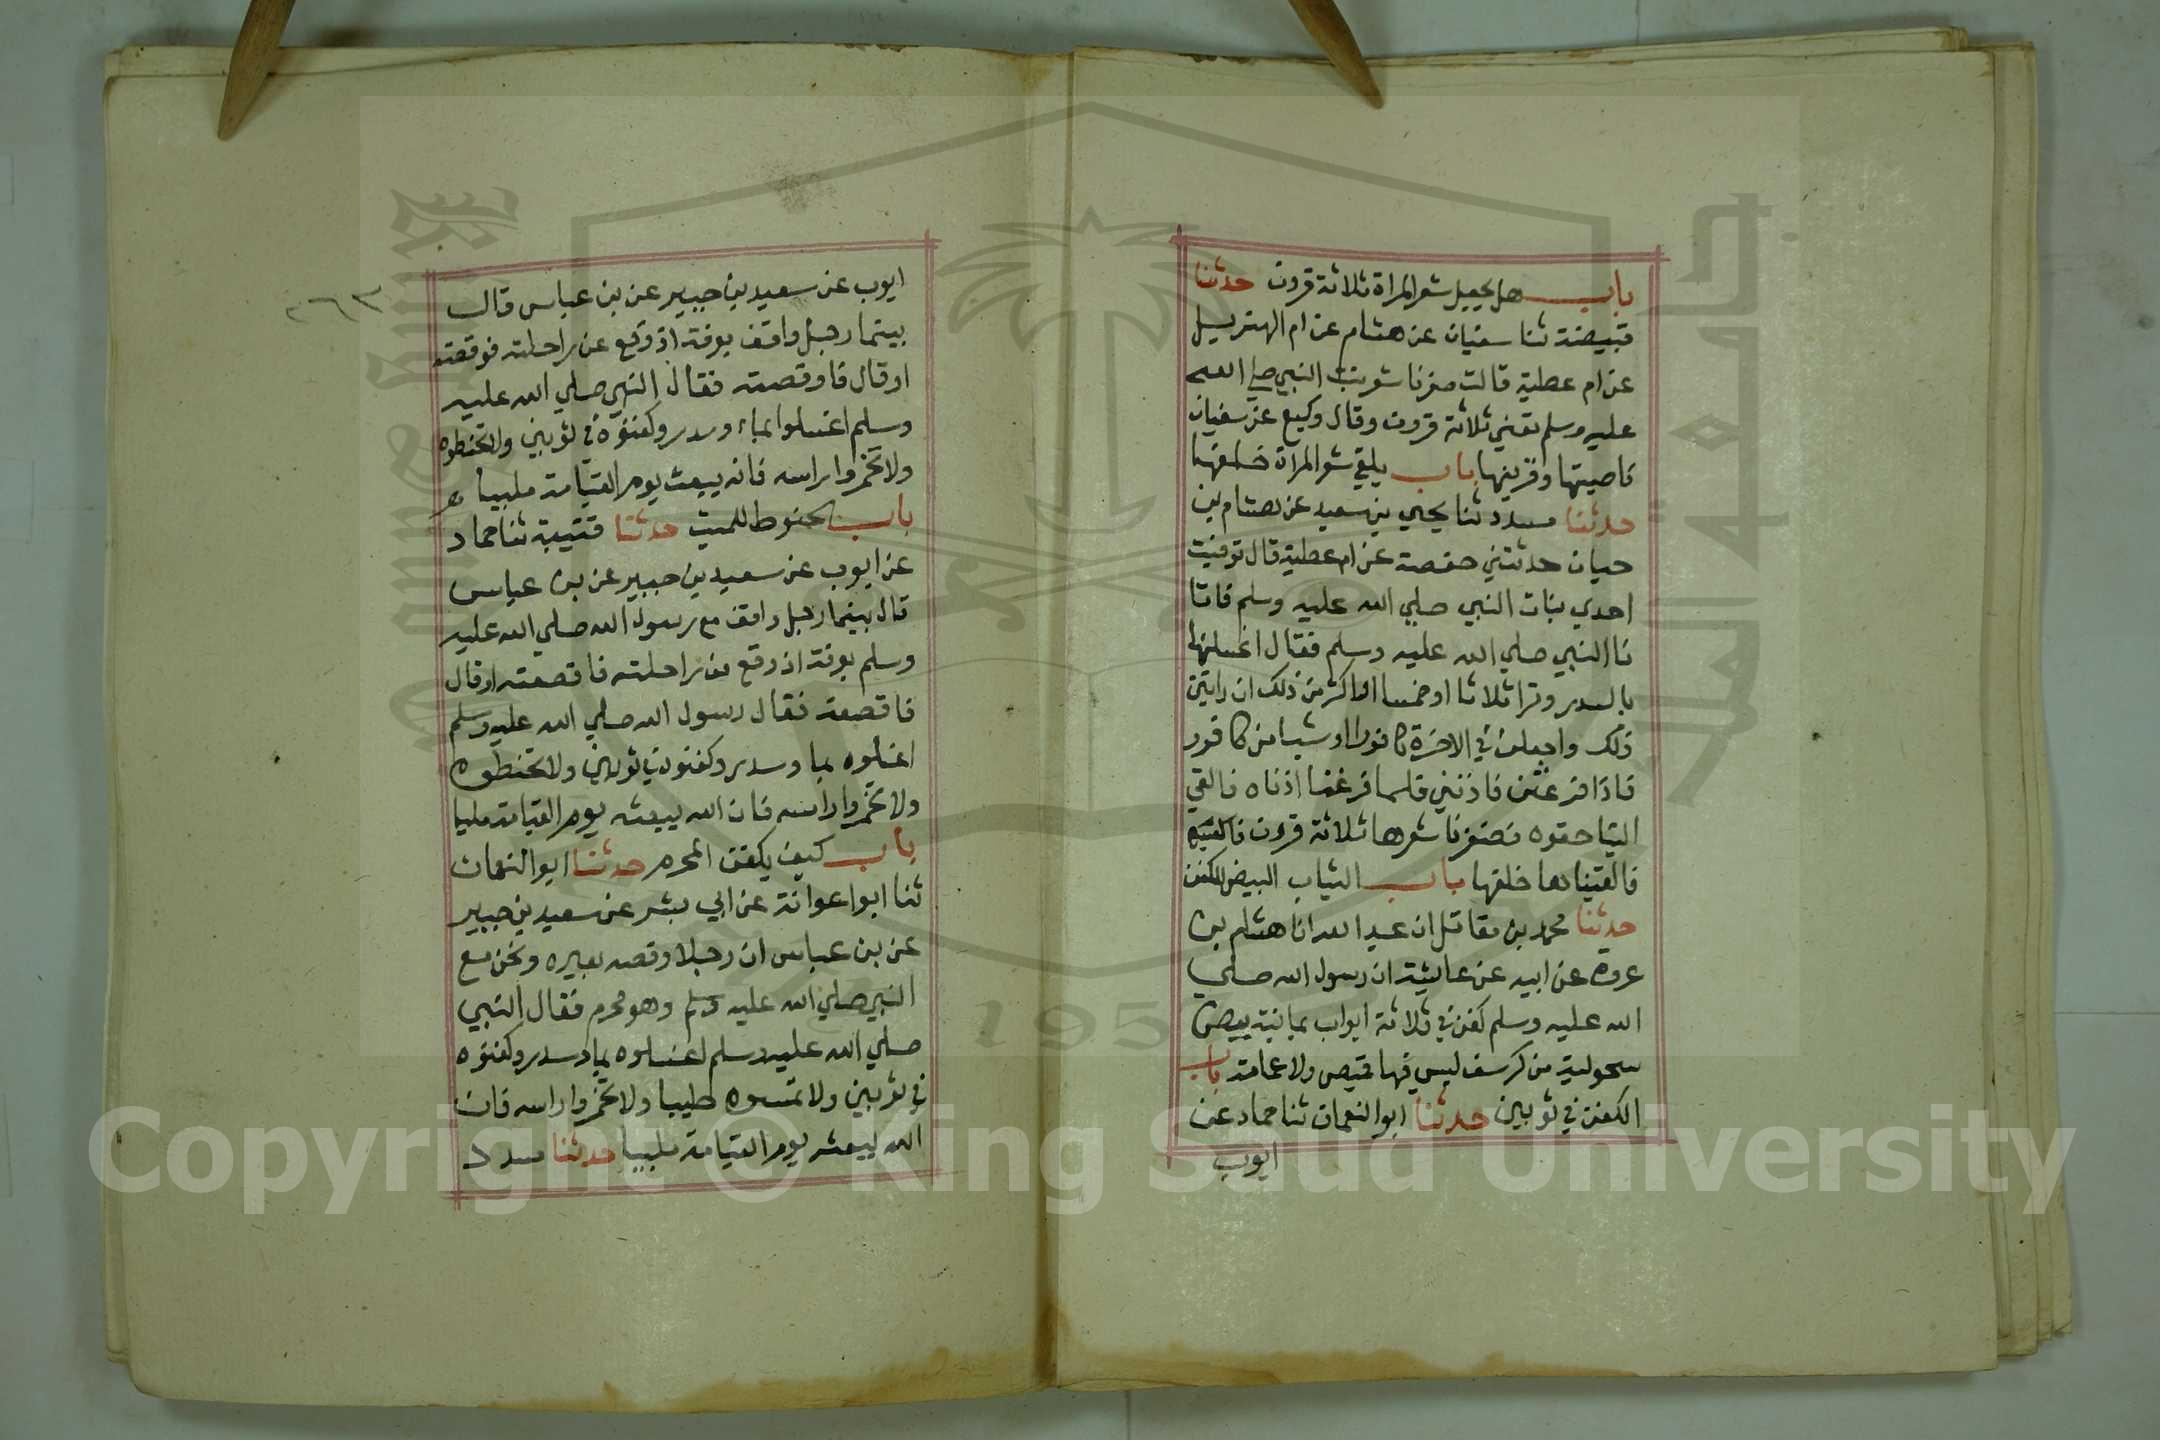 باب هل يجعل شعر المراة ثلاثة قرون حدثنا
قبيصة ثنا سفيان عن هشام عن ام الهذيل
عن ام عطية قالت ضفرنا شعر بنت النبي صلي الله
عليه وسلم تعني ثلاثة قرون وقال وكيع عن سفيان
ناصيتها وقرنيها باب يلقي شعر المراة خلفها
حدثنا مسدد ثنا يحيي بن سعيد عن هشام بن
حيان حدثتني حفصة عن ام عطية قال توفيت
احدي بنات النبي صلي الله عليه وسلم فاتا
نا النبي صلي الله عليه وسلم فقال اغسلنها
بالسدر وترا ثلاثا او خمسا او اكثر من ذلك ان رايتن
ذلك واجعلن في الاخرة كافورا او شيا من كافور
فاذا فرغتن فاذنني فلما فرغنا اذناه فالقي
الينا حقوه فضفرنا شعرها ثلاثة قرون
فالقيناها خلفها باب الثياب البيض للكفن
حدثنا محمد بن مقاتل انا عبد الله انا هشام بن
عروة عن ابيه عن عايشة ان رسول الله صلي
الله عليه وسلم كفن في ثلاثة اثواب يمانية بيض
سحولية من كرسف ليس فيها قميص ولا عمامة باب
الكفن في ثوبين حدثنا ابو النعمان ثنا حماد عن
ايوب
٢٦٣
ايوب عن سعيد بن جبير عن بن عباس قال
بينما رجل واقف بعرفة اذ وقع عن راحلته فوقصته
او قال فاوقصته فقال النبي صلي الله عليه
وسلم اغسلوا بماء وسدر وكفنوه في ثوبين ولا تحنطوه
ولا تخمروا راسه فانه يبعث يوم القيامة ملبيا
باب الحنوط للميت حدثنا قتيبة ثنا حماد
عن ايوب عن سعيد بن جبير عن بن عباس
قال بينما رجل واقف مع رسول الله صلي الله عليه
وسلم بعرفة اذ وقع من راحلته فاقصعته او قال
فاقعصته فقال رسول الله صلي الله عليه وسلم
اغسلوه بما وسدر وكفنوه في ثوبين ولا تحنطوه
ولا تخمروا راسه فان الله يبعثه يوم القيامة ملبيا
باب كيف يكفن المحرم حدثنا ابو النعمان
ثنا ابوا عوانة عن ابي بشر عن سعيد بن جبير
عن بن عباس ان رجلا وقصه بعيره ونحن مع
النبي صلي الله عليه وسلم وهو محرم فقال النبي
صلي الله عليه وسلم اغسلوه بما وسدر وكفنوه
في ثوبين ولا تمسوه طيبا ولا تخمروا راسه فان
الله يبعثه يوم القيامة ملبيا حدثنا مسدد
Copyright © King Saud University
195